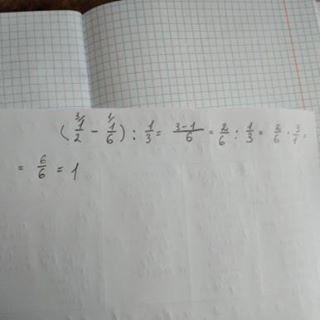 (³/1/2 - ¹/1/6) : 1/3 = 3-1/6 = 2/6 : 1/3 = 2/6 · 3/1 =
= 6/6 = 1